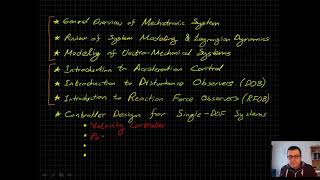 ★ General Overview of Mechatronic System
★ Review of System Modeling & Lagrangian Dynamics
★ Modeling of Electro-Mechanical Systems
★ Introduction to Acceleration Control
★ Introduction to Disturbance Observers (DOB)
★ Introduction to Reaction Force Observers (RFOB)
★ Controller Design for Single-DOF Systems
• Velocity Controller
• Po
•
•